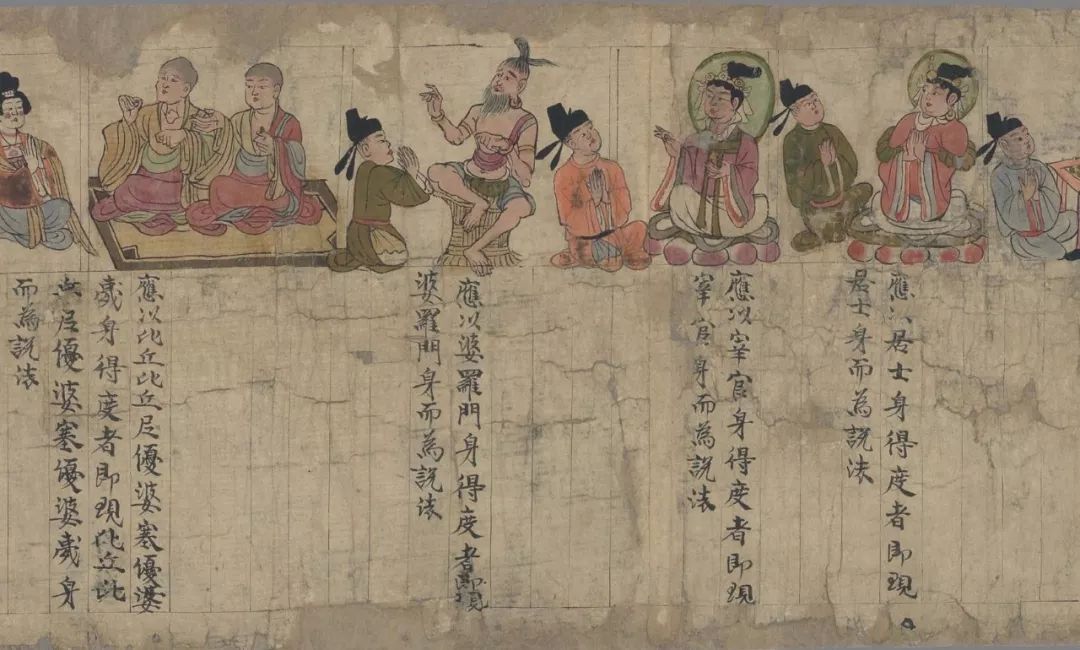 應以居士身得度者即現
居士身而為說法
應以宰官身得度者即現
宰官身而為說法
應以婆羅門身得度者即現
婆羅門身而為說法
應以比丘比丘尼優婆塞優婆
夷身得度者即現比丘比
丘尼優婆塞優婆夷身
而為說法